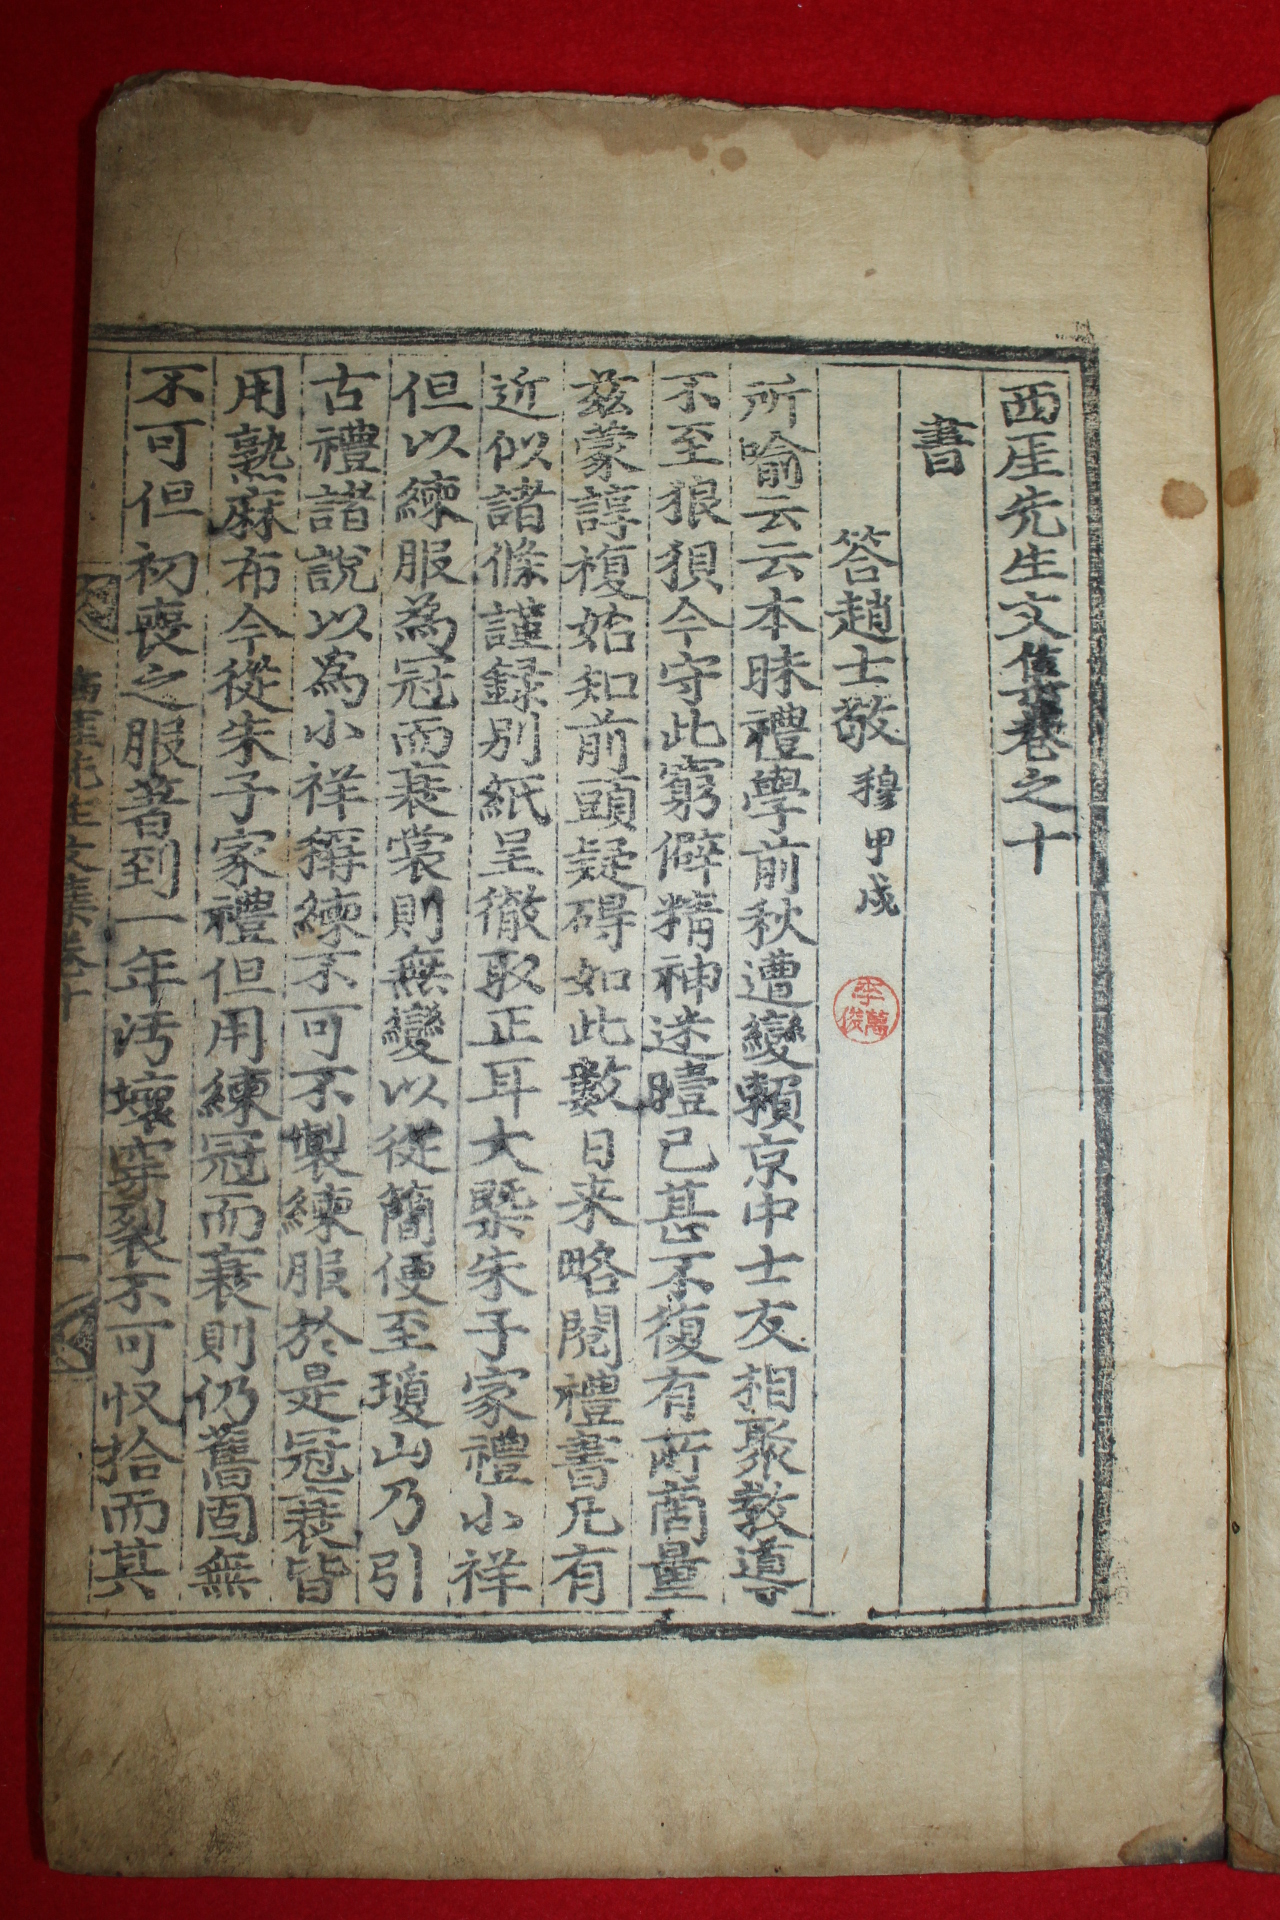 西厓先生文集卷之十
書
答趙士敬 穆 甲戌
李萬俊
所喻云云本昧禮學前秋遭變賴京中士友相聚敎導
不至狼狽今守此窮僻精神迷曀已甚不復有所商量
玆蒙諄複始知前頭疑碍如此數日来略閱禮書凡有
近似諸條謹録別紙呈徹取正耳大槩朱子家禮小祥
但以練服為冠而衰裳則無變以從簡便至瓊山乃引
古禮諸說以為小祥稱練不可不製練服於是冠衰皆
用熟麻布今從朱子家禮但用練冠而衰則仍舊固無
不可但初喪之服著到一年汚壞穿裂不可收拾而其
西厓先生文集卷十
一